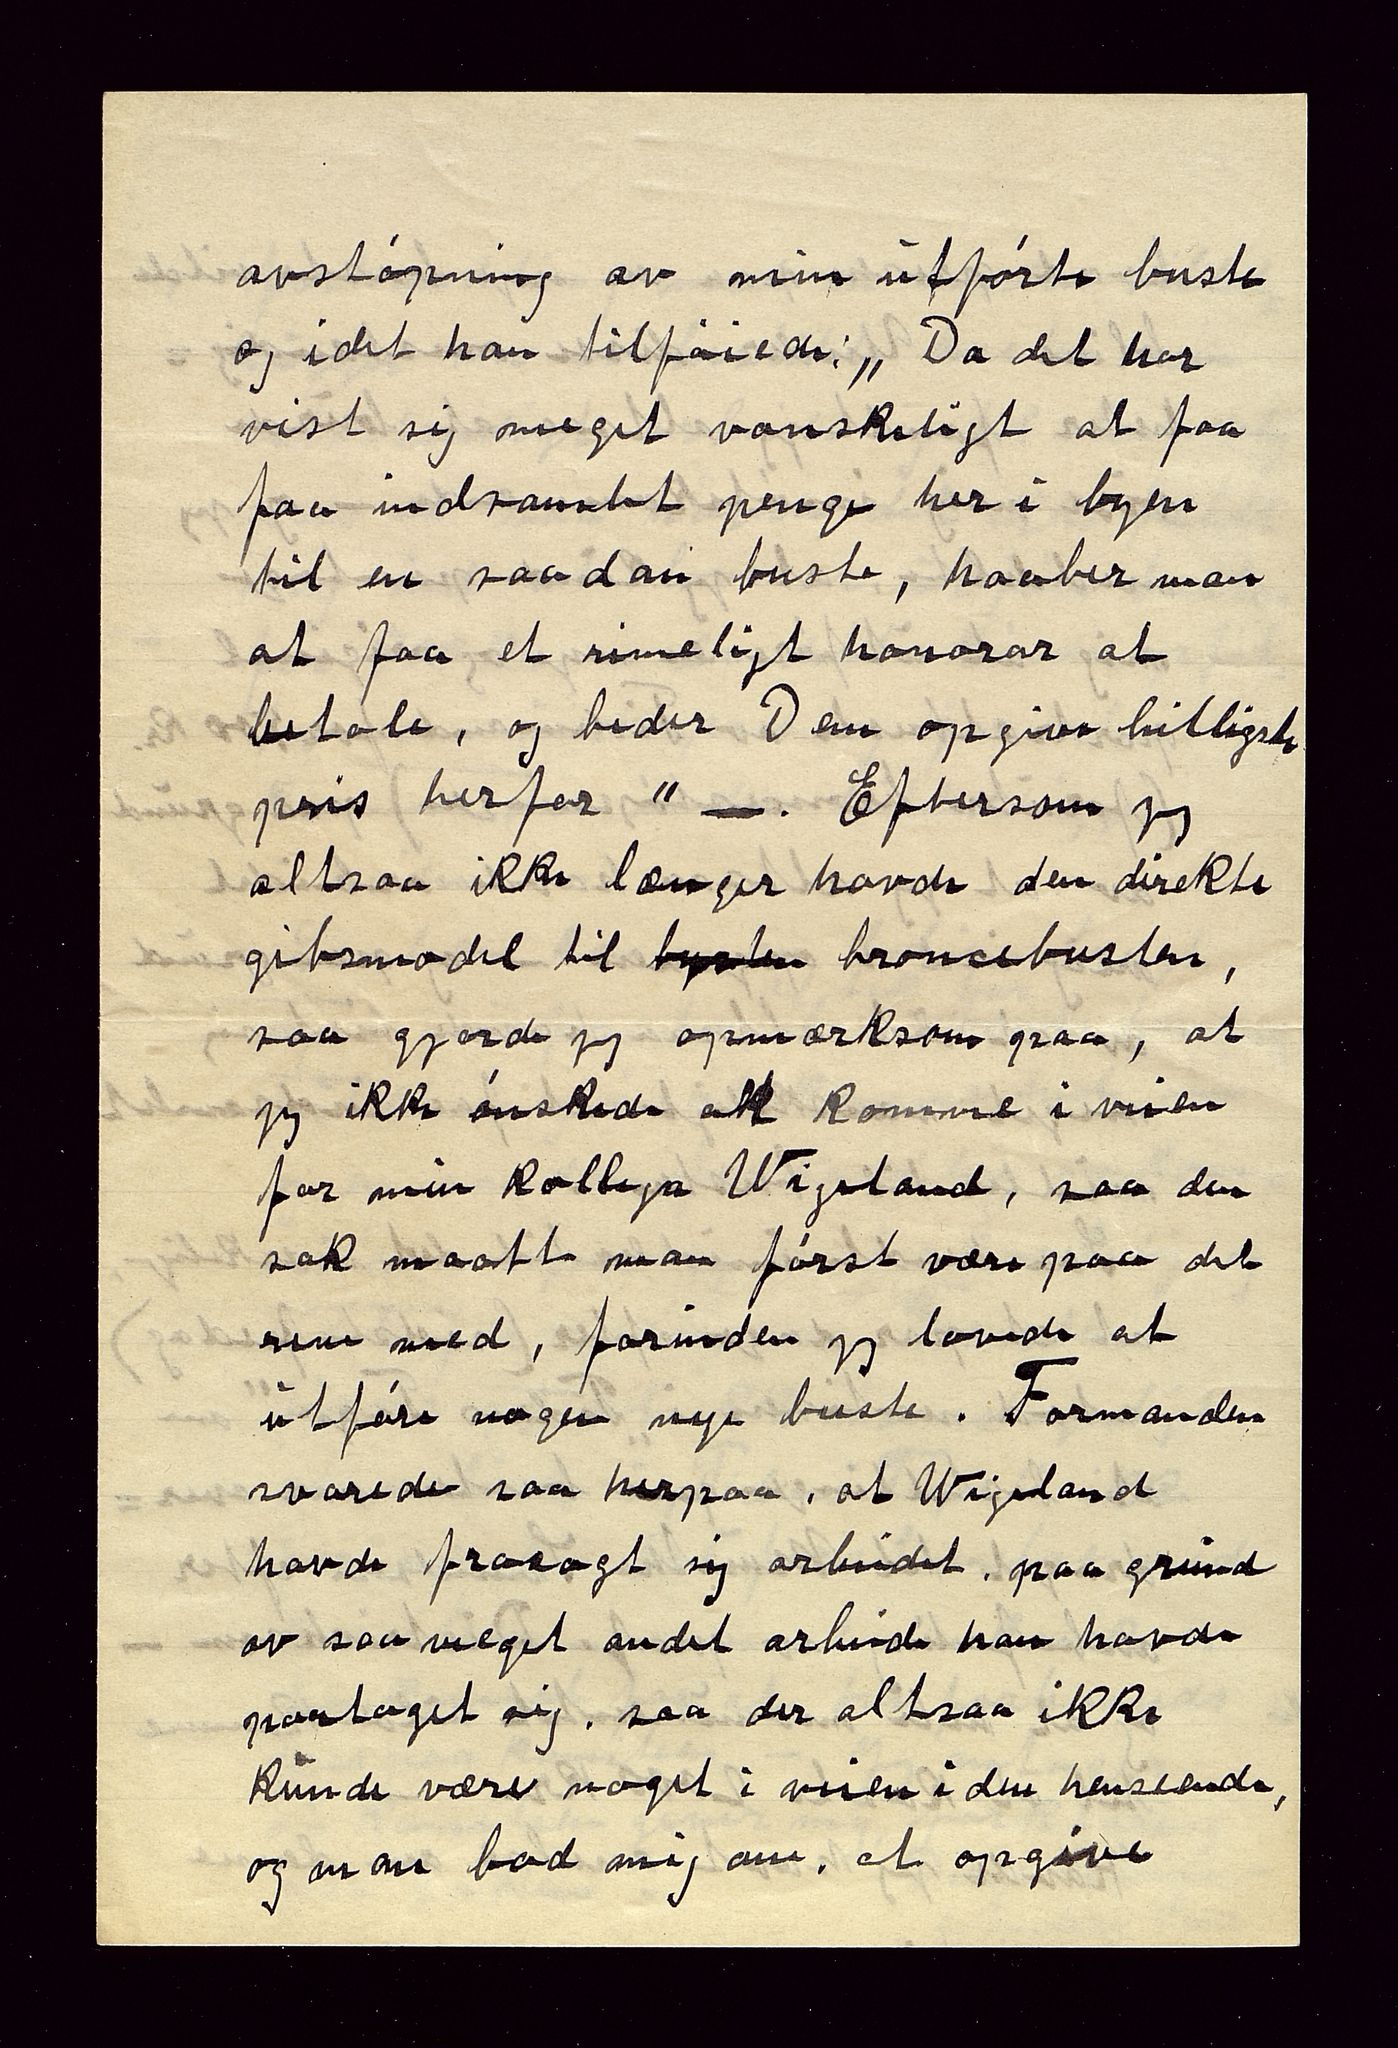 avstópning av min útförte buste
og idet han tilföiede: „Da det har
vist sig meget vanskeligt at faa
faa indsamlet penge her i byen
til en saadan buste, haaber man
at faa et rimeligt honorar at
betale, og beder Dem opgive billigste
pris herfor" —. Eftersom jeg
altsaa ikke længer havde den direkte
gibsmodel til bysten broncebusten,
saa gjorde jeg opmærksom paa, at
jeg ikke ónskede at komme i veien
for min kollega Wigeland, saa den
sak maatte man fórst være paa det
rene med, forinden jeg lovede at
útfóre nogen nye buste. Formanden
svarede saa herpaa, at Wigeland
havde frasagt sig arbeidet, paa grund
av saa meget andet arbeide han havde
paataget sig, saa der altsaa ikke
kunde være noget i veien i den henseende,
og man bad mig om, at opgive